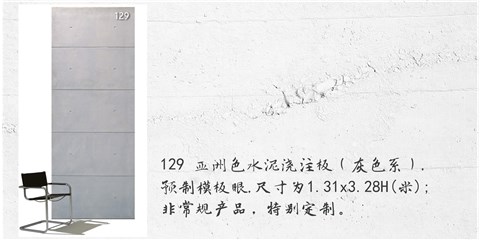 129
129 亚洲色水泥浇注板（灰色系），
预制模板眼,尺寸为1.31x3.28H(米);
非常规产品，特别定制。